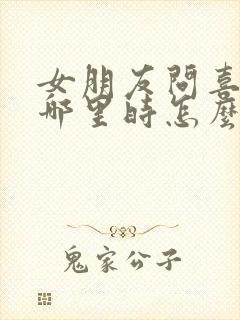 女朋友问喜
哪里时怎麼
鬼家公子